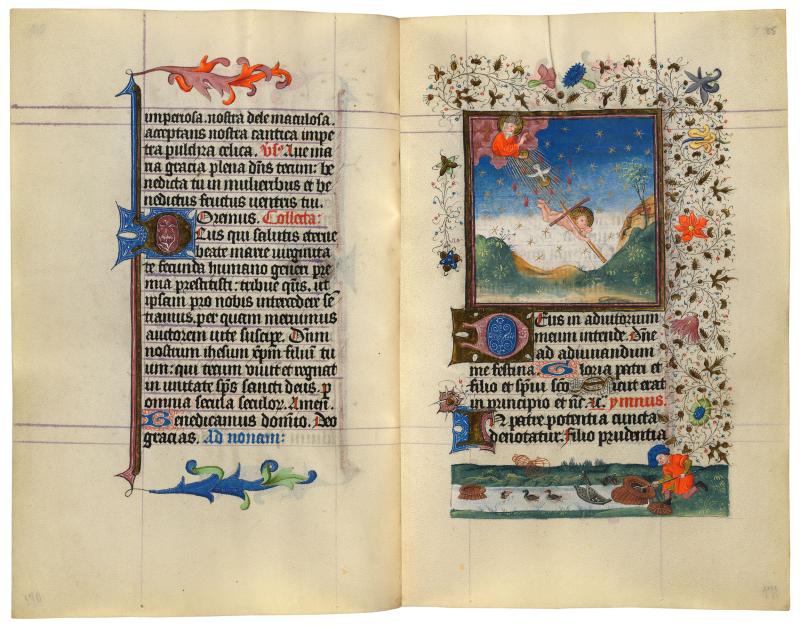 imperosa. nostra dele maculosa.
acceptans nostra cantica impe
tra pulchra celica. Vs. Aue ma
ria gracia plena dns tecum: be
nedicta tu in mulieribus et be
nedictus fructus uentris tui.
Oremus. Collecta:
Deus qui salutis eterne
beate marie uirginita
te fecunda humano generi pre
mia prestitisti: tribue qs. ut
ipsam pro nobis intercedere se
tiamus. per quam meruimus
auctorem uite suscipe. Dnm
nostrum ihesum xpm filiu tu
um: qui tecum uiuit et regnat
in unitate sps sancti deus. p
omnia secula seculor. Amen.
Benedicamus domino. Deo
gracias. Ad nonam:
85
Deus in adiutorium
meum intende. Dne
ad adiuuandum
me festina. Gloria patri et
filio et spiui sco Sicut erat
in principio et nc. Ymnus.
In patre potentia cuncta
denotatur. Filio prudentia